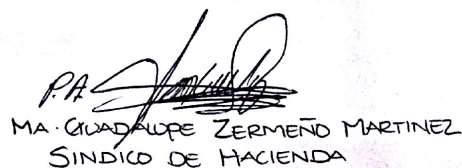 P.A
MA. GUADALUPE ZERMEÑO MARTINEZ
SINDICO DE HACIENDA